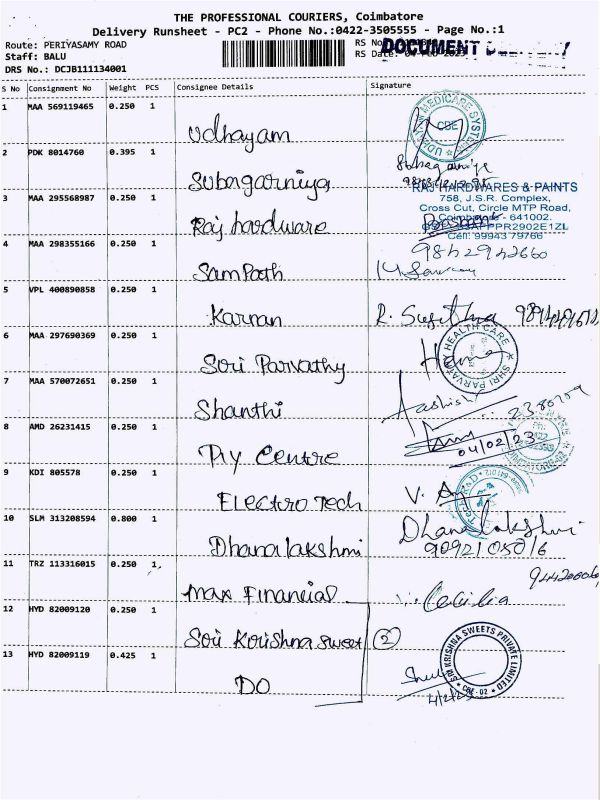 THE PROFESSIONAL COURIERS, Coimbatore
Delivery Runsheet - PC2 - Phone No.:0422-3505555 - Page No.:1
Route: PERIYASAMY ROAD
RS No
DOCUMENT
Staff: BALU
RS Date:
DRS No.: DCJB111134001
S No Consignment No Weight PCS Consignee Details Signature
1 MAA 569119465 0.250 1
Udhayam
MEDICARE
CBE
2 PDK 8014760 0.395 1
Subagarniya
3 MAA 295568987 0.250 1
Raj hardware
RAJ HARDWARES & PAINTS
758, J.S.R. Complex,
Cross Cut, Circle MTP Road,
Coimbatore - 641002.
Cell: 99943 79766
4 MAA 298355166 0.250 1
Sampath
9842942660
5 VPL 400890858 0.250 1
Karnan
R. Sujitha
6 MAA 297690369 0.250 1
Sori Parvathy
Hema
SHRI PARVATHY HEALTH CARE
7 MAA 570072651 0.250 1
Shanthi
Aashish
8 AMD 26231415 0.250 1
Centre
04/02/23
9 KDI 805578 0.250 1
Electro Tech
10 SLM 313208594 0.800 1
Dhanalakshmi
Dhanalakshmi
9092105016
11 TRZ 113316015 0.250 1
max Financial
Cecilia
12 HYD 82009120 0.250 1
Sori Korishna sweet
2
SRI KRISHNA SWEETS PRIVATE LIMITED
CBE-02
13 HYD 82009119 0.425 1
DO